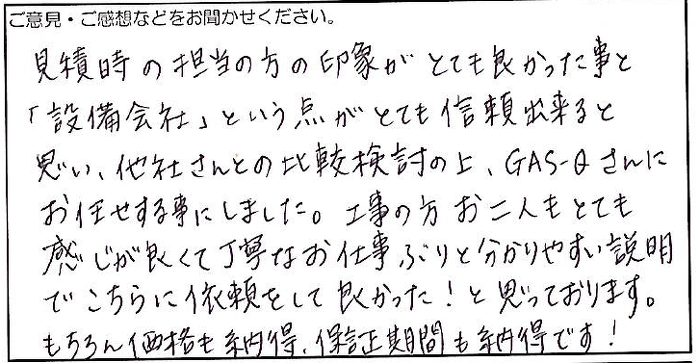 ご意見・ご感想などをお聞かせください。
見積時の担当の方の印象がとても良かった事と
「設備会社」という点がとても信頼出来ると
思い、他社さんとの比較検討の上、GAS-Qさんに
お任せする事にしました。工事の方お二人もとても
感じが良くて丁寧なお仕事ぶりと分かりやすい説明
でこちらに依頼をして良かった！と思っております。
もちろん価格も納得、保証期間も納得です！